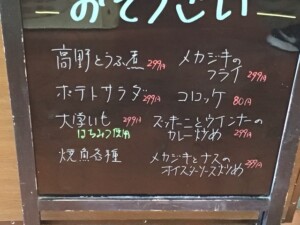 おそうざい
高野とうふ煮 299円
ポテトサラダ 299円
大学いも 299円
はちみつ使用
焼魚各種
メカジキの
フライ 299円
コロッケ 80円
ズッキーニとウインナーの
カレー炒め 299円
メカジキとナスの
オイスターソース炒め 399円